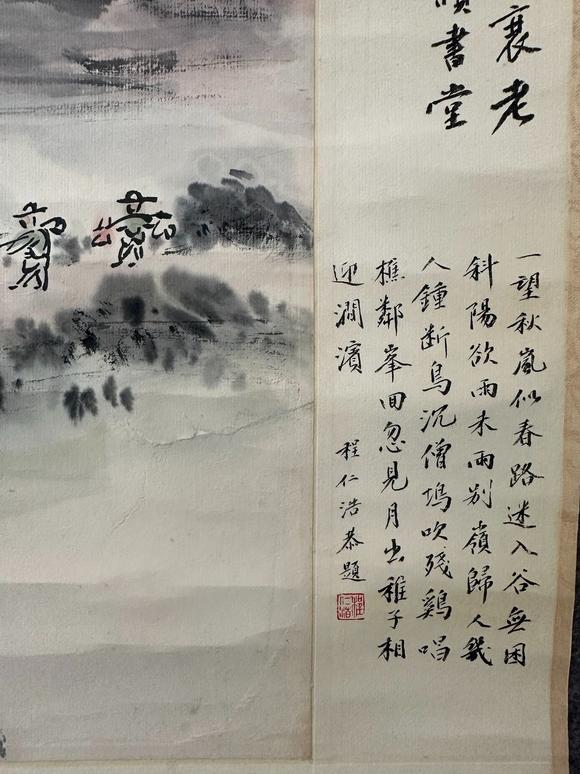 襄老
書堂
一望秋嵐似春路迷入谷無困
斜陽欲雨未雨別嶺歸人幾
人鍾断鳥沉僧塢吹殘鷄唱
樵鄰峯回忽見月出稚子相
迎澗濱
程仁浩恭題